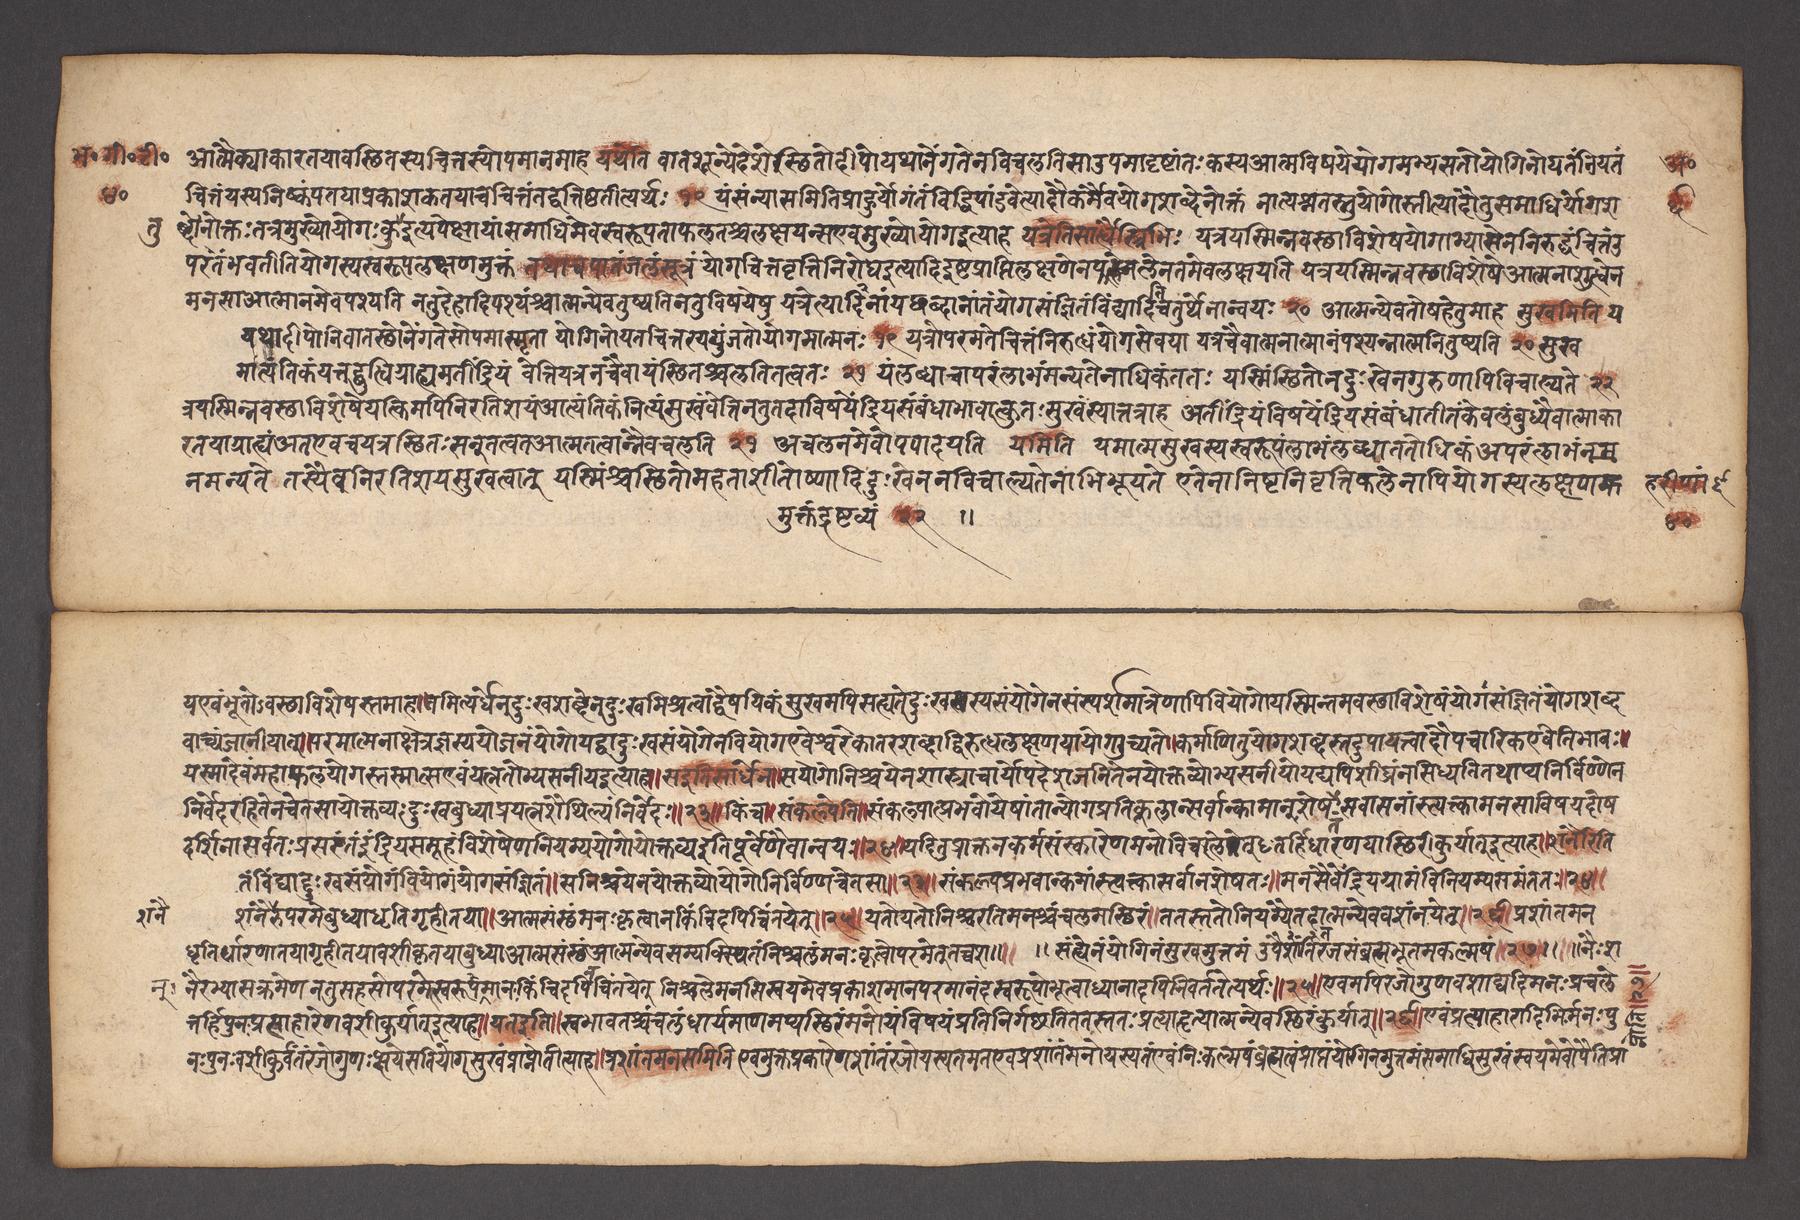 भ॰गी॰टी॰
४०
अ॰
६
आत्मैक्याकारतयावस्थितस्यचित्तस्योपमानमाह यथेति वातशून्येदेशेस्थितोदीपोयथानेंगतेनविचलतिसाउपमादृष्टांतः कस्यआत्मविषयेयोगमभ्यसतोयोगिनोयतंनियतं
चित्तंयस्यनिष्कंपतयाप्रकाशकतयाचचित्तंतद्वत्तिष्ठतीत्यर्थः १९ यंसंन्यासमितिप्राहुर्योगंतंविद्धिपांडवेत्यादौकर्मैवयोगशब्देनोक्तं नात्यश्नतस्तुयोगोस्तीत्यादौतुसमाधिर्योगश
तु
ब्देनोक्तः तत्रमुख्योयोगः कइत्यपेक्षायांसमाधिमेवस्वरूपतःफलतश्चलक्षयन्सएवमुख्योयोगइत्याह यत्रेतिसार्धैस्त्रिभिः यत्रयस्मिन्नवस्थाविशेषेयोगाभ्यासेननिरुद्धंचित्तंउ
परतंभवतीतियोगस्यस्वरूपलक्षणमुक्तं तथाचपातंजलंसूत्रं योगचित्तवृत्तिनिरोधइत्यादिइष्टप्राप्तिलक्षणेनफलेनतमेवलक्षयति यत्रयस्मिन्नवस्थाविशेषेआत्मनाशुद्धेन
मनसाआत्मानमेवपश्यति नतुदेहादिपश्यंश्चात्मन्येवतुष्यतिनतुविषयेषु यत्रेत्यादिनांयच्छब्दानांतंयोगसंज्ञितंविद्यादितिचतुर्थेनान्वयः २० आत्मन्येवतोषेहेतुमाह सुखमिति य
यथादीपोनिवातस्थोनेंगतेसोपमास्मृता योगिनोयतचित्तस्ययुंजतोयोगमात्मनः १९ यत्रोपरमतेचित्तंनिरुद्धंयोगसेवया यत्रचैवात्मनात्मानंपश्यन्नात्मनितुष्यति २० सुख
मात्यंतिकंयत्तद्बुद्धिग्राह्यमतींद्रियं वेत्तियत्रनचैवायंस्थितश्चलतितत्वतः २१ यंलब्ध्वाचापरंलाभंमन्यतेनाधिकंततः यस्मिंस्थितोनदुःखेनगुरुणापिविचाल्यते २२
त्रयस्मिन्नवस्थाविशेषेयत्किमपिनिरतिशयंआत्यंतिकंनित्यंसुखंवेत्तिननुतदाविषयेंद्रियसंबंधाभावात्कुतःसुखंस्यात्तत्राह अतींद्रियंविषयेंद्रियसंबंधातीतंकेवलंबुध्यैवात्माका
रतयाग्राह्यंअतएवचयत्रस्थितः सन्नुतत्वतआत्मतत्वान्नैवचलति २१ अचलनमेवोपपादयति यमिति यमात्मसुखस्यस्वरूपंलाभंलब्ध्वाततोधिकंअपरंलाभंनम
नमन्यते तस्यैवनिरतिशयसुखत्वात् यस्मिंश्चस्थितोमहताशीतोष्णादिदुःखेननविचाल्यतेनाभिभूयते एतेनानिष्टनिवृत्तिफलेनापियोगस्यलक्षणम
मुक्तंद्रष्टव्यं २२ ॥
४०
यएवंभूतोऽवस्थाविशेषस्तमाह॥तमित्यर्धेनदुःखशब्देनदुःखमिश्रत्वाद्वैषयिकंसुखमपिसगृह्यतेदुःखस्यसंयोगेनसंस्पर्शमात्रेणापिवियोगोयस्मिन्तमवस्थाविशेषंयोगसंज्ञितंयोगशब्द
वाच्यंजानीयात्॥परमात्मनाक्षेत्रज्ञस्ययोजनंयोगोयद्वादुःखसंयोगेनवियोगएवशूरेकातरशब्दवद्विरुद्धलक्षणयायोगउच्यते॥कर्माणितुयोगशब्दस्तदुपायत्वादौपचारिकएवेतिभावः॥
यस्मादेवंमहाफलयोगस्तस्मात्सएवंयत्नतोभ्यसनीयइत्याह॥सइतिसार्धेन॥सयोगोनिश्चयेनशास्त्राचार्योपदेशजनितेनयोक्तव्योभ्यसनीयोयद्यपिशीघ्रंनसिध्यतितथाप्यनिर्विण्णेन
निर्वेदरहितेनचेतसायोक्तव्यःदुःखबुध्याप्रयत्नशैथिल्यंनिर्वेदः॥२३॥किंच॥संकल्पेति॥संकल्पात्प्रभवोयेषांतान्योगप्रतिकूलान्सर्वान्कामानशेषतःसवासनांस्त्यक्त्वामनसाविषयदोष
दर्शिनासर्वतःप्रसरंतंइंद्रियसमूहंविशेषेणनियम्ययोगोयोक्तव्यइतिपूर्वेणैवान्वयः॥२४॥यदितुप्राक्तनकर्मसंस्कारेणमनोविचलेत्तर्हिधारणयास्थिरीकुर्यातइत्याह॥शनैरिति
तंविद्याद्दुःखसंयोगंवियोगंयोगसंज्ञितं॥सनिश्चयेनयोक्तव्योयोगोनिर्विण्णचेतसा॥२३॥संकल्पप्रभवान्कामांस्त्यक्त्वासर्वानशेषतः॥मनसैवेंद्रियग्रामंविनियम्यसमंततः॥२४॥
शनै
शनैरुपरमेबुध्याधृतिगृहीतया॥आत्मसंस्थंमनःकृत्वानकिंचिदपिचिंतयेत्॥२५॥यतोयतोनिश्चरतिमनश्चंचलमस्थिरं॥ततस्ततोनियम्यैतदात्मन्येववशंनयेत्॥२६॥प्रशांतमन
धृतिर्धारणातयागृहीतयावशीकृतयाबुध्याआत्मसंस्थंआत्मन्येवसम्यक्स्थितंनिश्चलंमनःकृत्वोपरमेत्तच्च॥ ॥संह्येनंयोगिनंसुखमुत्तमं उपैतिशांतरजसंब्रह्मभूतमकल्मषं॥२७॥ ॥नैःश
नैरभ्यासक्रमेण नतुसहसोपरमेस्वरूपमानःकिंचिदपिचिंतयेत् निश्चलेमनसिस्वयमेवप्रकाशमानपरमानंदस्वरूपोभूत्वाध्यानादपिनिवर्ततेत्यर्थः॥२५॥एवमपिरजोगुणवशाद्यदिमनःप्रचलते
तर्हिपुनःप्रत्याहारेणवशीकुर्यातइत्याह॥यतइति॥स्वभावतश्चंचलंधार्यमाणमप्यस्थिरंमनोयंविषयंप्रतिनिर्गच्छतिततस्ततःप्रत्याहृत्यात्मन्येवस्थिरंकुर्यात्॥२६॥एवंप्रत्याहारादिभिर्मनःपु
नःपुनःवशीकुर्वतंरजोगुणःक्षयेसतियोगसुखंप्राप्नोतीत्याह॥प्रशांतमनसमिति एवमुक्तप्रकारेणशांतंरजोयस्यतमतएवप्रशांतंमनोयस्यतंएवंनिःकल्मषंब्रह्मत्वंप्राप्तंयोगिनमुत्तमंसमाधिसुखंस्वयमेवोपैतिप्रा